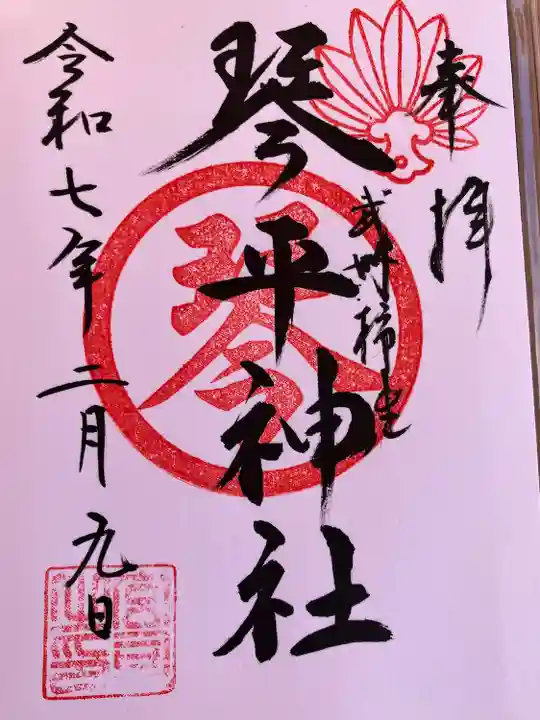 奉拝
武州柿生
琴平神社
琴
令和七年二月九日